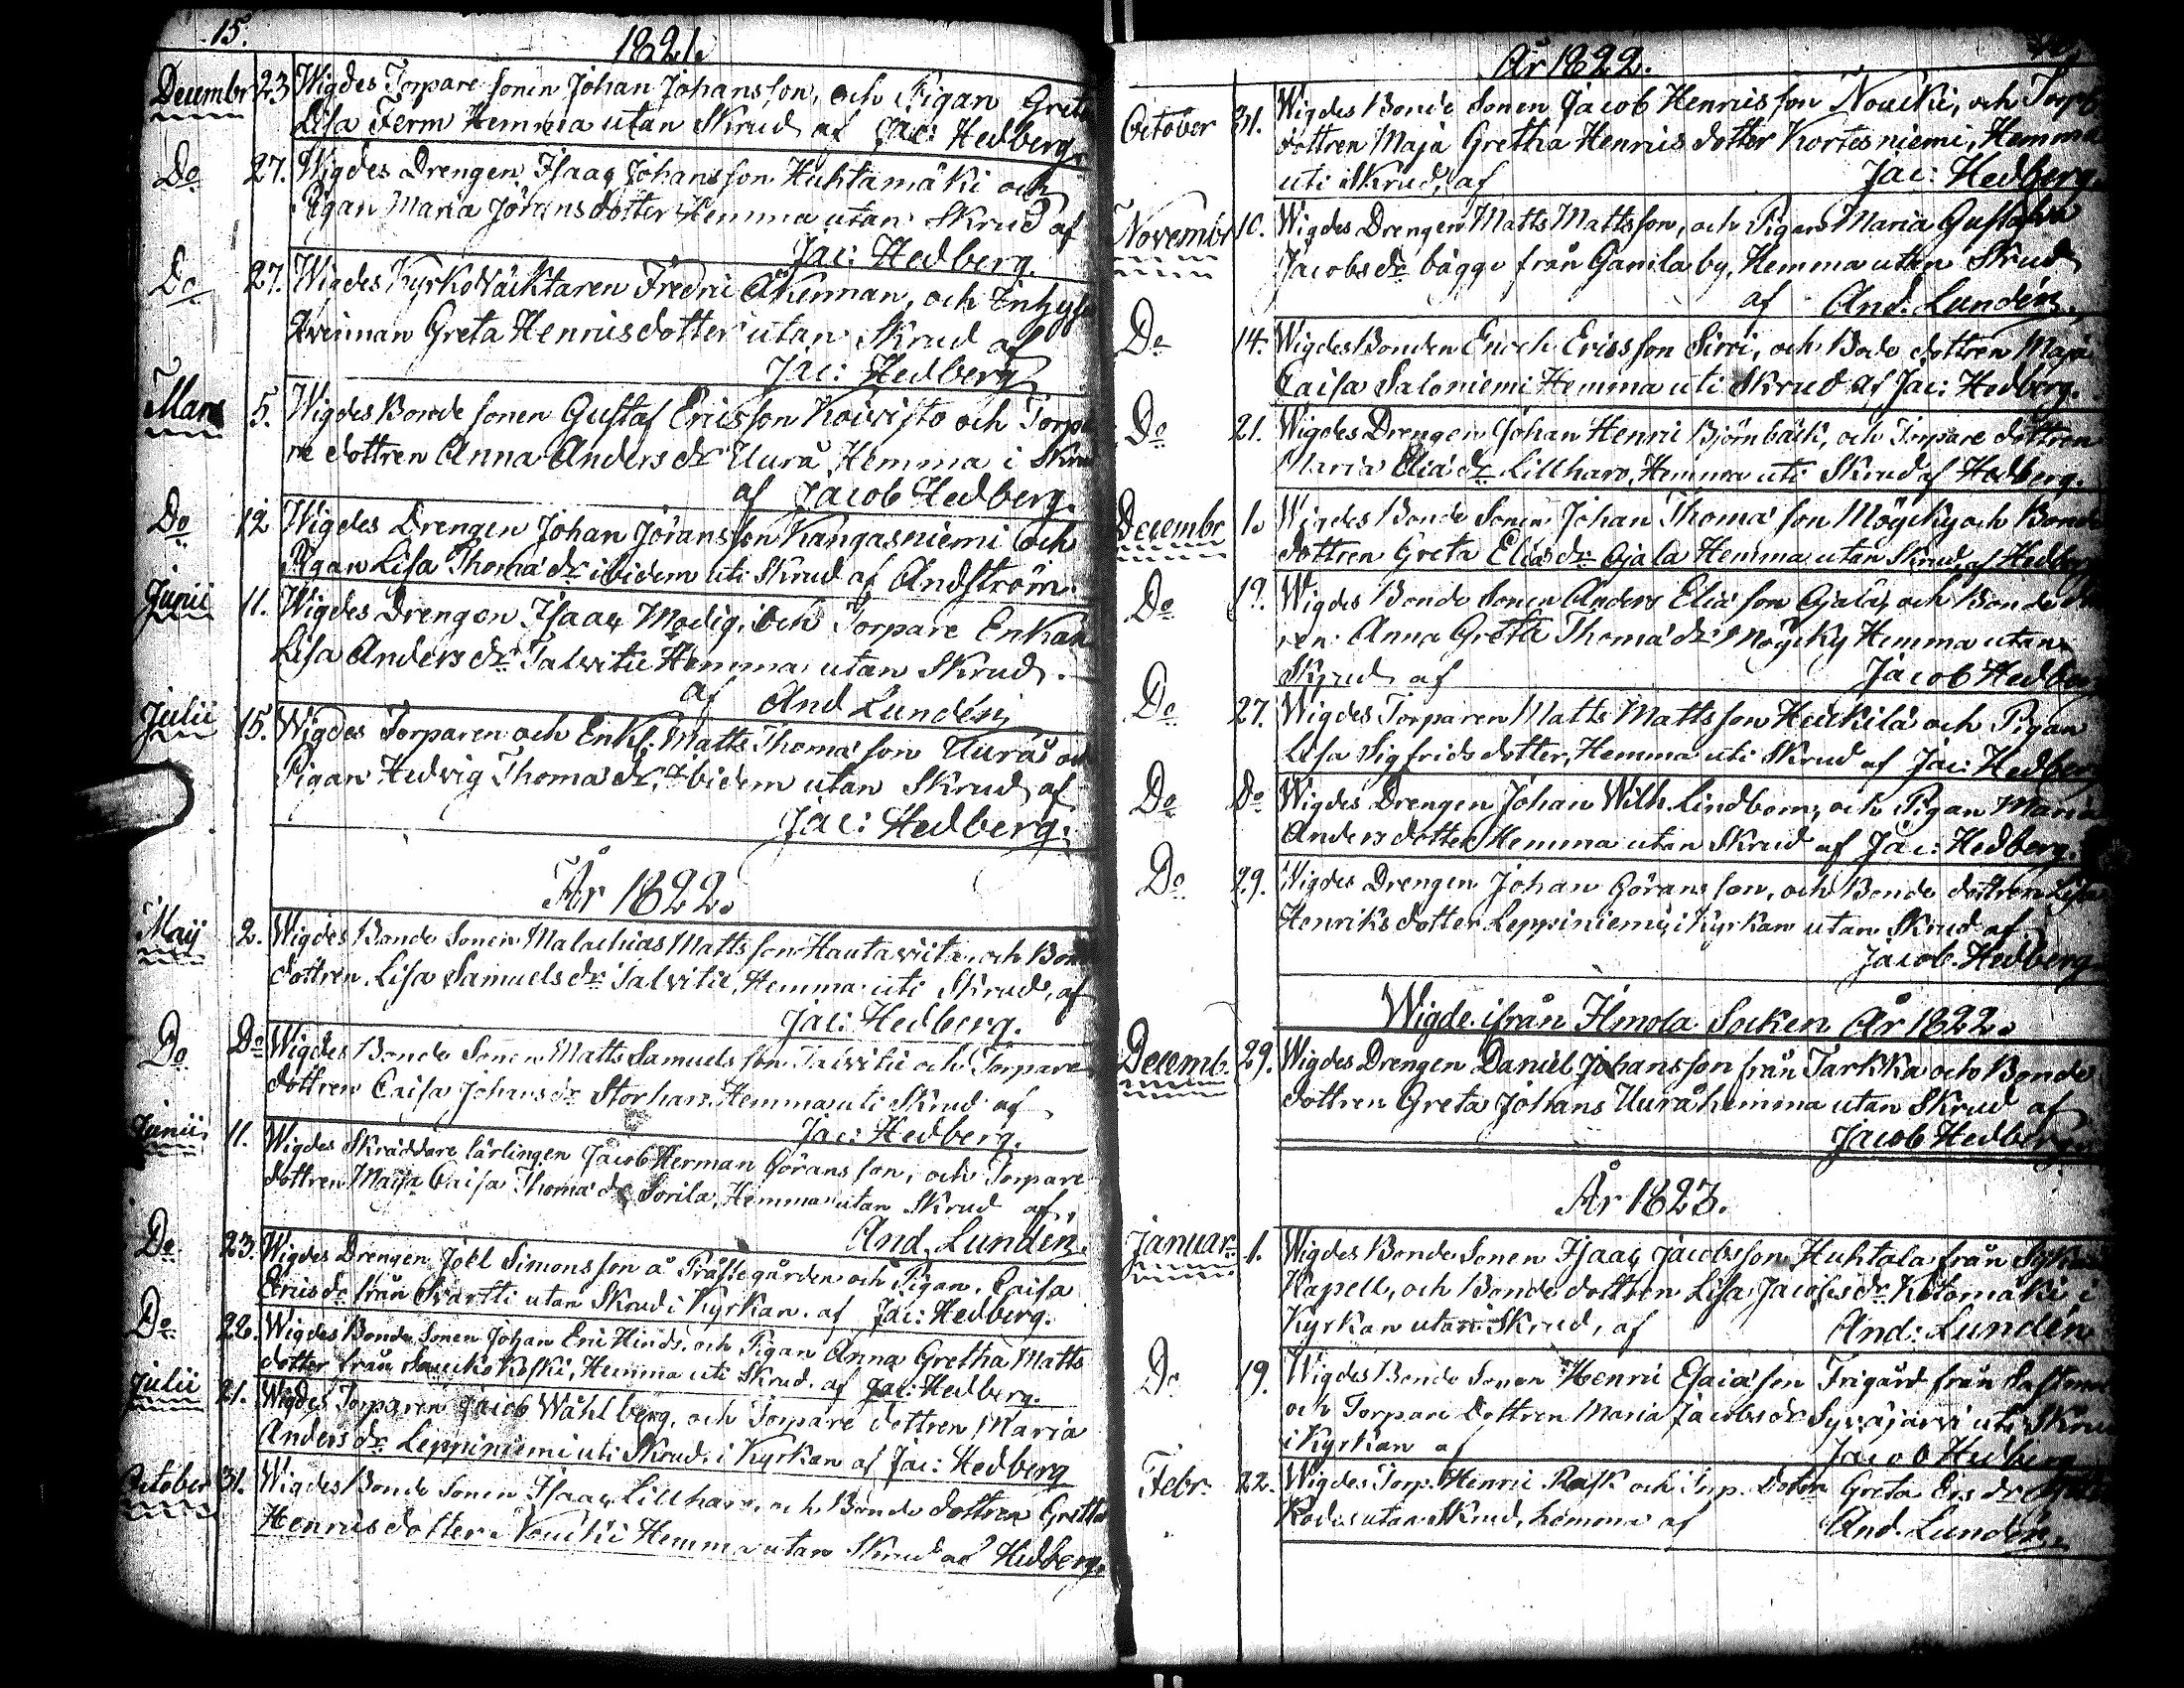 15.
1821.
Decembr 23 Wigdes Torpare sonen Johan Johansson, och Pigan Greta
Lisa Ferm Hemma utan Skrud af Jac: Hedberg.
Do 27. Wigdes Drengen Isaac Johansson Huhtamäki och
Pigan Maria Jöransdotter Hemma utan Skrud af
Jac: Hedberg.
Do 27. Wigdes Kyrkoväcktaren Fredric Åkerman, och Inhyses
Qvinnan Greta Henricsdotter utan Skrud af
Jac: Hedberg
Mars 5. Wigdes Bonde sonen Gustaf Ericsson Koivisto och Torpa
re dottren Anna Anders dr Uurå Hemma i Skrud
af Jacob Hedberg.
Do 12 Wigdes Drengen Johan Jöransson Kangasniemi och
Pigan Lisa Thoma dr ibidem uti Skrud af Andström.
Junii 11. Wigdes Drengen Isaac Modig, och Torpare Enkan
Lisa Anders dr Talvitie Hemma utan Skrud.
af And Lundén
Julii 15. Wigdes Torparen och Enkl. Matts Thoma son Uurå och
Pigan Hedvig Thoma dr, ibidem utan Skrud af
Jac: Hedberg.
År 1822.
Maij 2. Wigdes Bonde Sonen Malachias Matts son Hautaviita, och Bonde
dottren Lisa Samuels dr Talvitie, Hemma uti Skrud, af
Jac: Hedberg.
Do Do Wigdes Bonde Sonen Matts Samuels son Talvitie och Torpare
dottren Caisa Johans dr Storharo Hemma uti Skrud af
Jac: Hedberg.
Junii 11. Wigdes Skräddare lärlingen Jacob Herman Görans son, och Torpare
dottren Maja Caisa Thoma dr Sorila, Hemma utan Skrud af,
And. Lundén.
Do 23. Wigdes Drengen Joel Simons son å Prästegården och Pigan Caisa
Erics dr från Svartti utan Skrud i Kyrkan. af Jac: Hedberg.
Do 22. Wigdes Bonde Sonen Johan Eric Hinds, och Pigan Anna Gretha Matts
dotter från Saucko Koski, Hemma uti Skrud. af Jac: Hedberg.
Julii 21. Wigdes Torparen Jacob Wåhlberg, och Torpare dottren Maria
Anders dr Leppiniemi uti Skrud i Kyrkan af Jac: Hedberg
October 31. Wigdes Bonde Sonen Isaac Lillharo, och Bonde dottren Gretha
Henricsdotter Noucki Hemma utan Skrud af Hedberg.
År 1822.
October 31. Wigdes Bonde Sonen Jacob Henricsson Noucki, och Torp
dottren Maja Gretha Henrics dotter Kortesniemi, Hemma
uti Skrud, af Jac: Hedberg.
Novembr 10. Wigdes Drengen Matts Mattsson, och Pigan Maria Gustafva
Jacobs dr bägge från Gamla by, Hemma utan Skrud
af And. Lundén.
Do 14. Wigdes Bonden Enoch Ericsson Sirvi, och Bode dottren Maja
Caisa Saloniemi Hemma uti Skrud af Jac: Hedberg.
Do 21. Wigdes Drengen Johan Henric Björnbäck, och Torpare dottren
Maria Elia dr Lillharo, Hemma uti Skrud af Hedberg.
Decembr 1. Wigdes Bonde Sonen Johan Thoma son Möycky och Bonde
dottren Greta Elias dr Ojala Hemma utan Skrud, af Hedberg
Do Wigdes Bonde Sonen Anders Elia son Ojala, och Bonde
ren Anna Greta Thoma dr Möycky Hemma utan
Skrud af Jacob Hedberg
Do 27. Wigdes Torparen Matts Matts son Heickilä och Pigan
Lisa Sigfrids dotter, Hemma uti Skrud af Jac: Hedberg
Do Do Wigdes Drengen Johan Wilh. Lindbom, och Pigan Maria
Anders dotter Hemma utan Skrud af Jac: Hedberg.
Do 29. Wigdes Drengen Johan Görans son, och Bonde dottren Lisa
Henriks dotter Leppiniemi, i Kyrkan utan Skrud af
Jacob Hedberg
Wigde ifrån Ilmola Socken År 1822.
Decemb. 29. Wigdes Drengen Daniel Johansson från Jarkka och Bonde
dottren Greta Johans Uurå hemma utan Skrud af
Jacob Hedberg.
År 1823.
Januar. 1. Wigdes Bonde Sonen Isaac Jacobsson Huhtala från
Kapell, och Bonde dottren Lisa Jacobs dr Ketomäki i
Kyrkan utan Skrud, af And: Lundén
Do 19. Wigdes Bonde Sonen Henric Esaia son Frigård från
och Torpare Dottren Maria Jacobs dr Syväjärvi uti Skrud
i Kyrkan af Jacob Hedberg
Febr. 22. Wigdes Torp. Henric Rask och Torp. dotter Greta Ers dr
utan Skrud, hemma af And. Lundén.